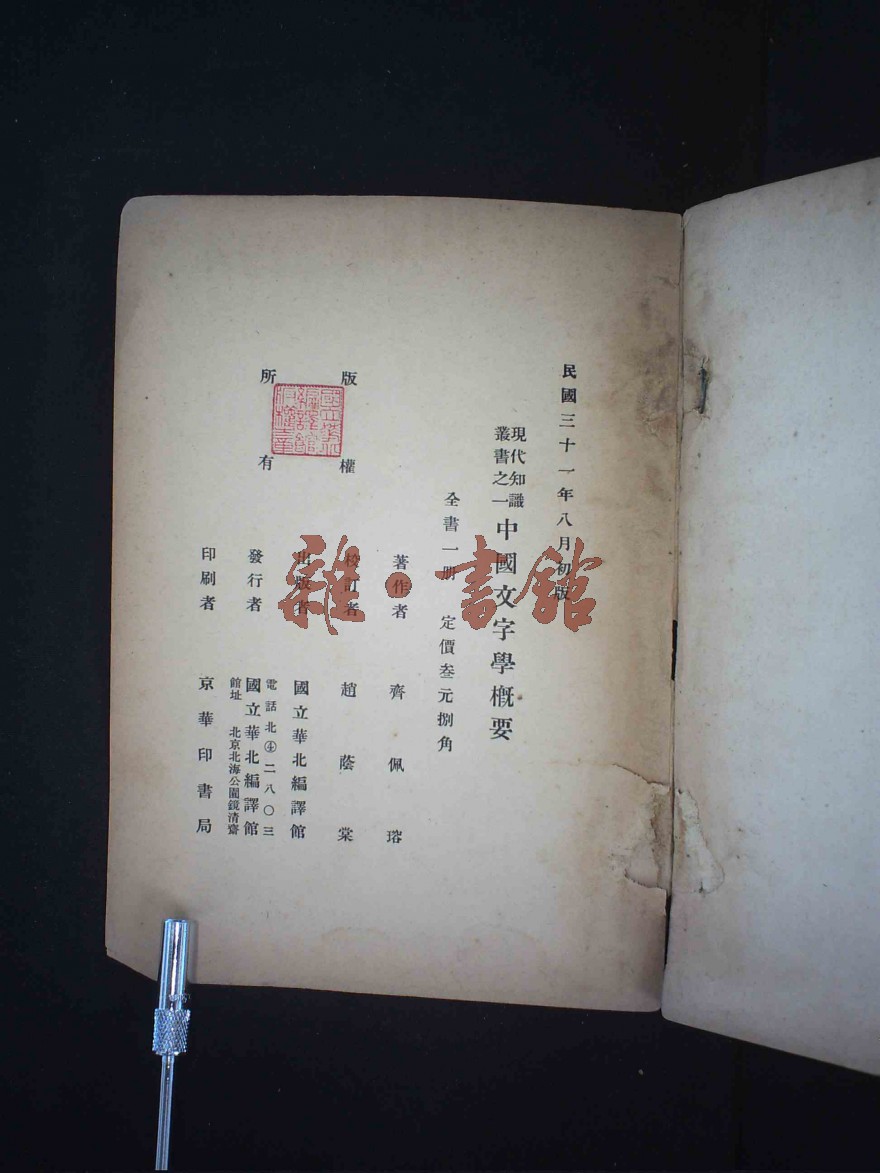 民國三十一年八月初版
現代知識
叢書之一
中國文字學概要
全書一冊 定價叁元捌角
著作者 齊佩瑢
校訂者 趙蔭棠
出版者 國立華北編譯館
電話北④二八〇三
發行者 國立華北編譯館
館址 北京北海公園鏡清齋
印刷者 京華印書局
版權
所有
國立華北編譯館版權之章
雜·書館